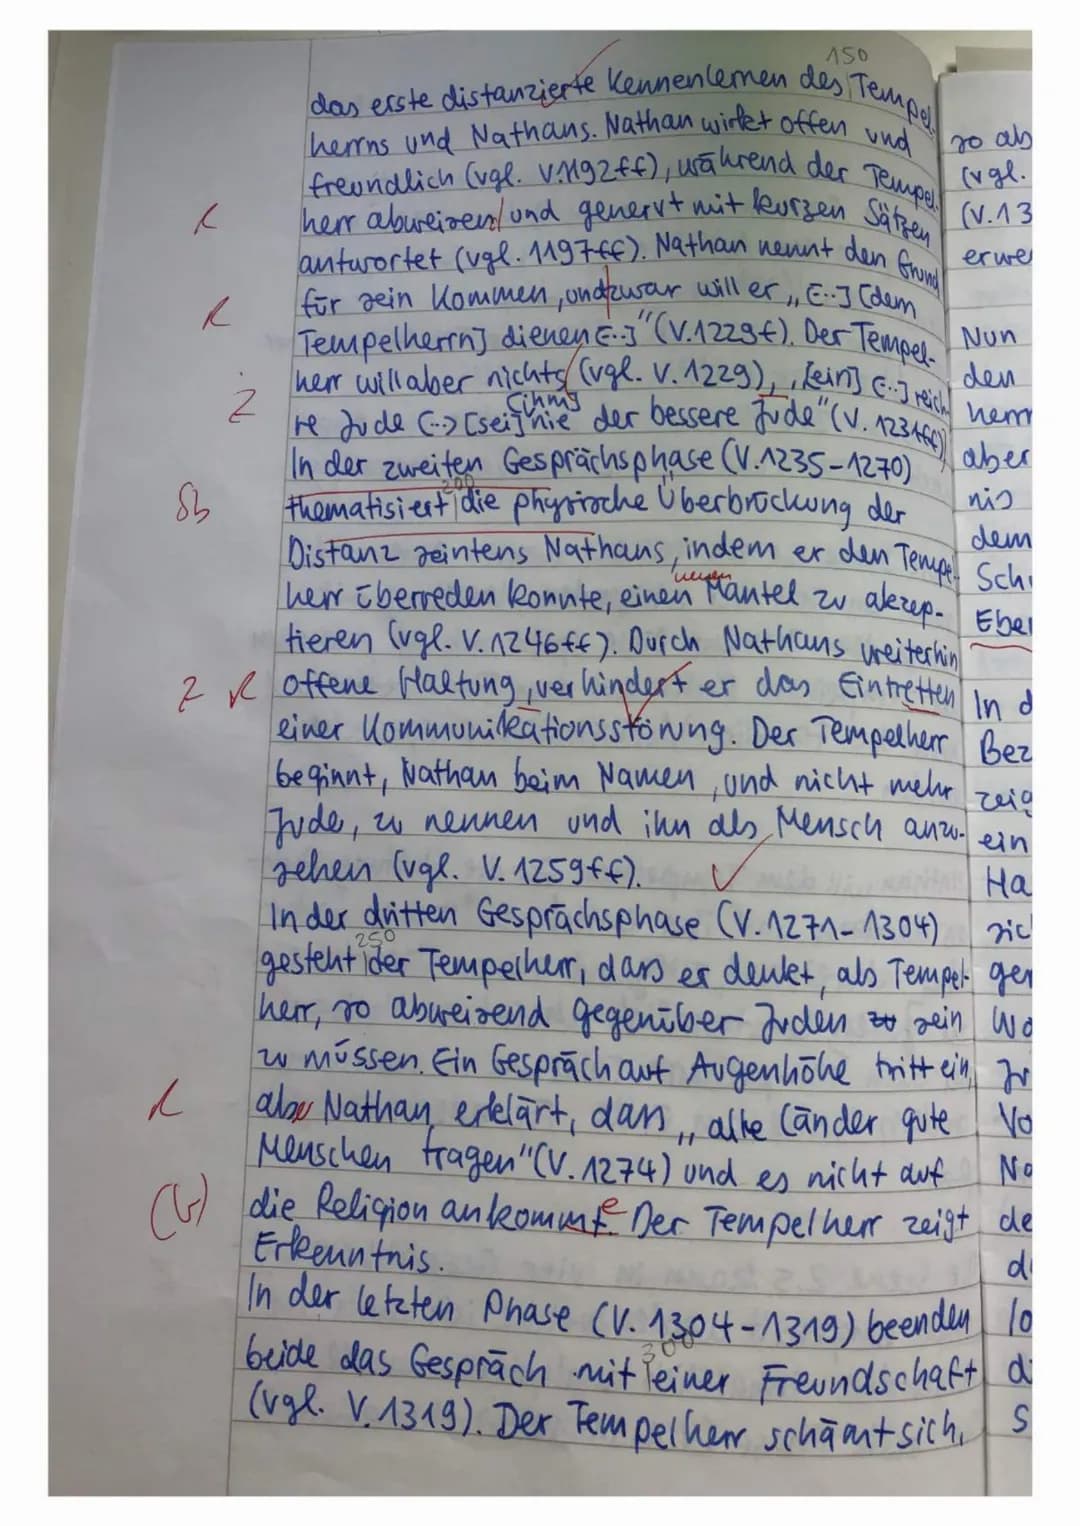 150
das erste distanzierte Kennenlernen des Tempel-
herrns und Nathans. Nathan wirkt offen und
freundlich (vgl. V.1192ff), während der Tempel-
R herr abweisend und genervt mit kurzen Sätzen
antwortet (vgl. 1197ff). Nathan nennt den Grund
R für sein Kommen, und zwar will er „[...] [dem
Tempelherrn] dienen [...]" (V.1229f). Der Tempel-
herr will aber nichts (vgl. V. 1229), „[ein] [...] reich
[ihm]
Z re Jude [...] [sei] nie der bessere Jude" (V. 1231ff)
In der zweiten Gesprächsphase (V.1235-1270)
200
Sb thematisiert die physische Überbrückung der
Distanz seintens Nathans, indem er den Tempel
neuen
herr überreden konnte, einen Mantel zu akzep-
tieren (vgl. V. 1246ff). Durch Nathans weiterhin
Z R offene Haltung, verhindert er das Eintretten
einer Kommunikationsstörung. Der Tempelherr
beginnt, Nathan beim Namen, und nicht mehr
Jude, zu nennen und ihn als Mensch anzu-
sehen (vgl. V. 1259ff).
In der dritten Gesprächsphase (V. 1271-1304)
250
gesteht der Tempelherr, dass er denkt, als Tempel-
herr, so abweisend gegenüber Juden zu sein
zu müssen. Ein Gespräch auf Augenhöhe tritt ein,
R als Nathan erklärt, dass „alle Länder gute
Menschen tragen" (V. 1274) und es nicht auf
(G) die Religion ankommt e. Der Tempelherr zeigt
Erkenntnis.
In der letzten Phase (V. 1304-1319) beenden
300
beide das Gespräch mit einer Freundschaft
(vgl. V. 1319). Der Tempelherr schämt sich,
so als
(vgl.
(V.13
erwe
Nun
den
herrn
aber
nis
dem
Sch
Eben
In d
Bez
zeig
ein
Ha
sic
gen
Wo
Ju
Vo
Na
de
d
lo
di
S